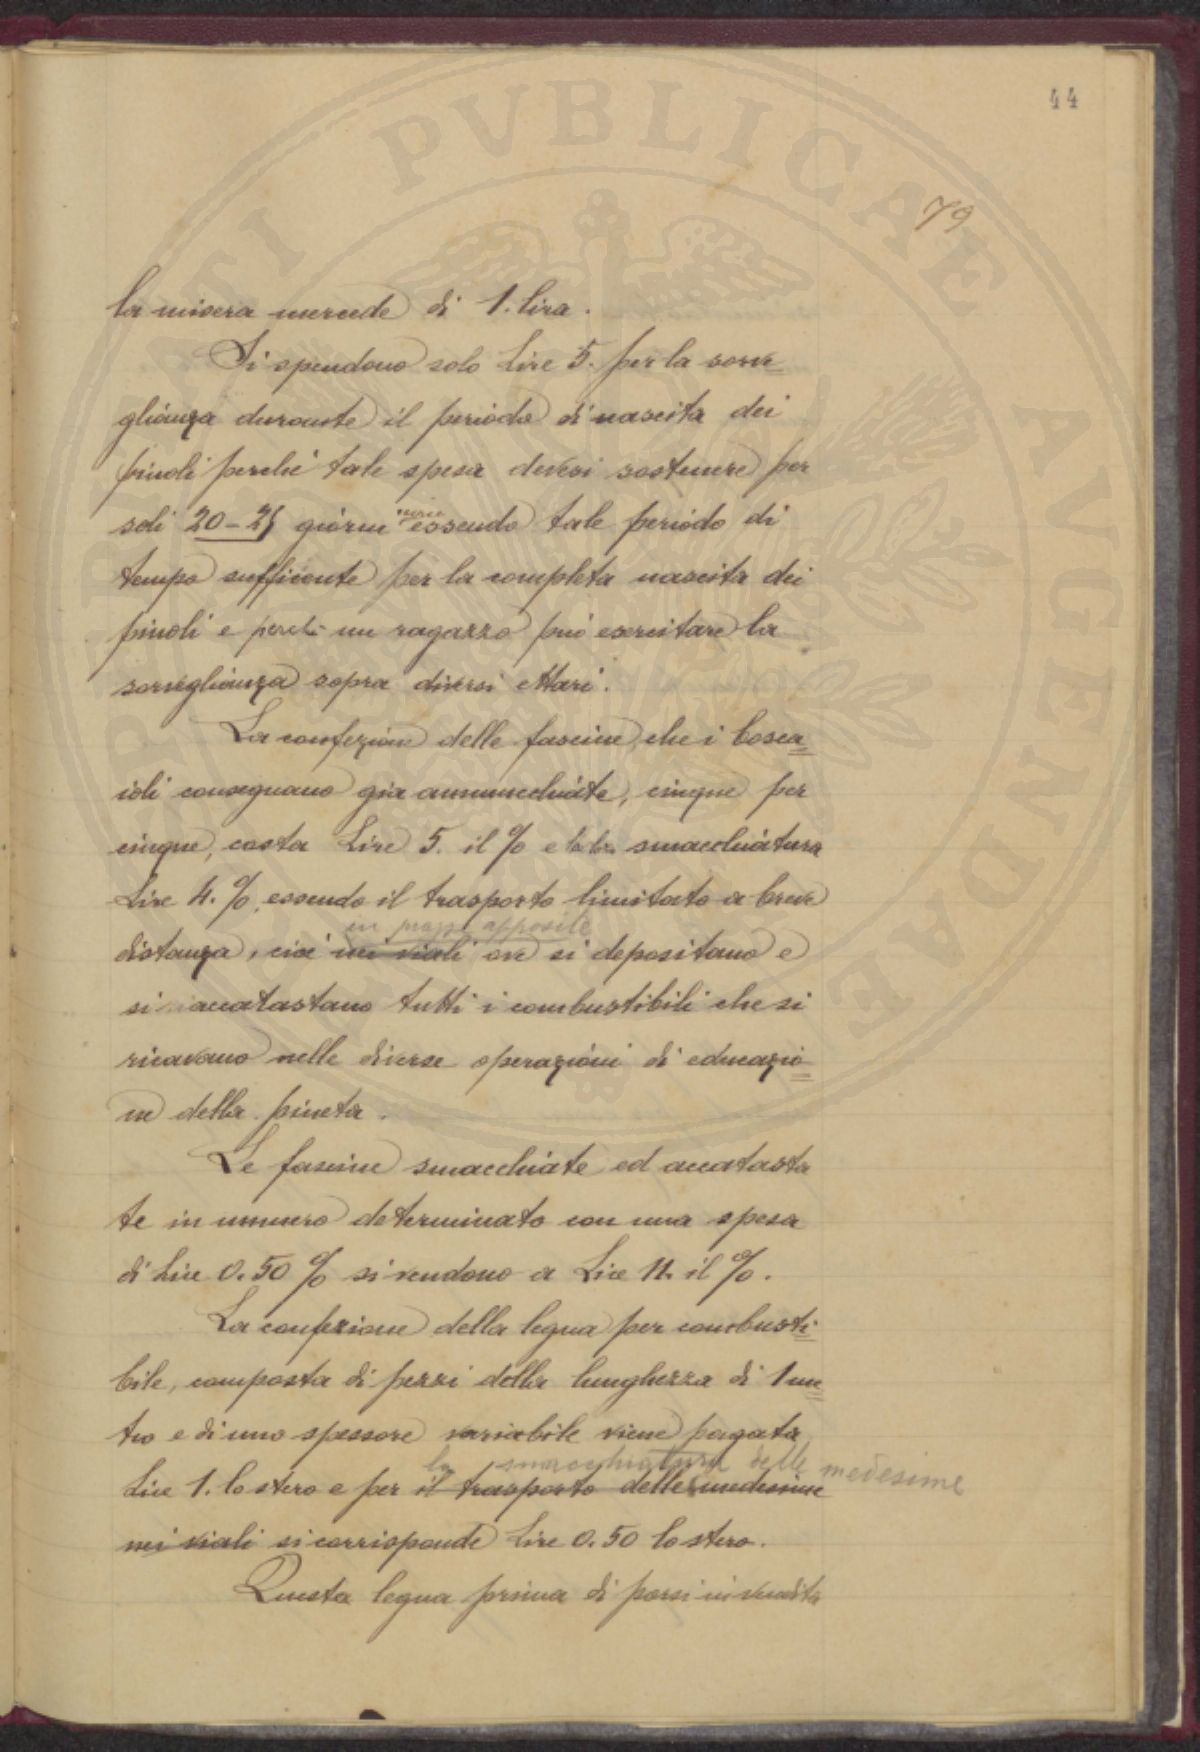 44
79
la misera mercede di 1. lira.
Si spendono solo Lire 5. per la sorve
glianza durante il periodo di nascita dei
pinoli perchè tale spesa devesi sostenere per
soli 20-25 giorni essendo tale periodo di
tempo sufficiente per la completa nascita dei
pinoli e perchè un ragazzo può esercitare la
sorveglianza sopra diversi ettari.
La confezione delle fascine, che i bosca
ioli consegnano già ammucchiate, cinque per
cinque, costa Lire 5. il % e la smacchiatura
Lire 4. %, essendo il trasporto limitato a breve
in piazze apposite
distanza, cioè nei viali ove si depositano e
si accatastano tutti i combustibili che si
ricavano nelle diverse operazioni di educazio
ne della pineta.
Le fascine smacchiate ed accatasta
te in numero determinato con una spesa
di Lire 0.50 % si vendono a Lire 11. il %.
La confezione della legna per combusti
bile, composta di pezzi della lunghezza di 1 me
tro e di uno spessore variabile viene pagata
la smacchiatura delle medesime
Lire 1. lo stero e per il trasporto delle medesime
nei viali si corrisponde Lire 0.50 lo stero.
Questa legna prima di porsi in vendita